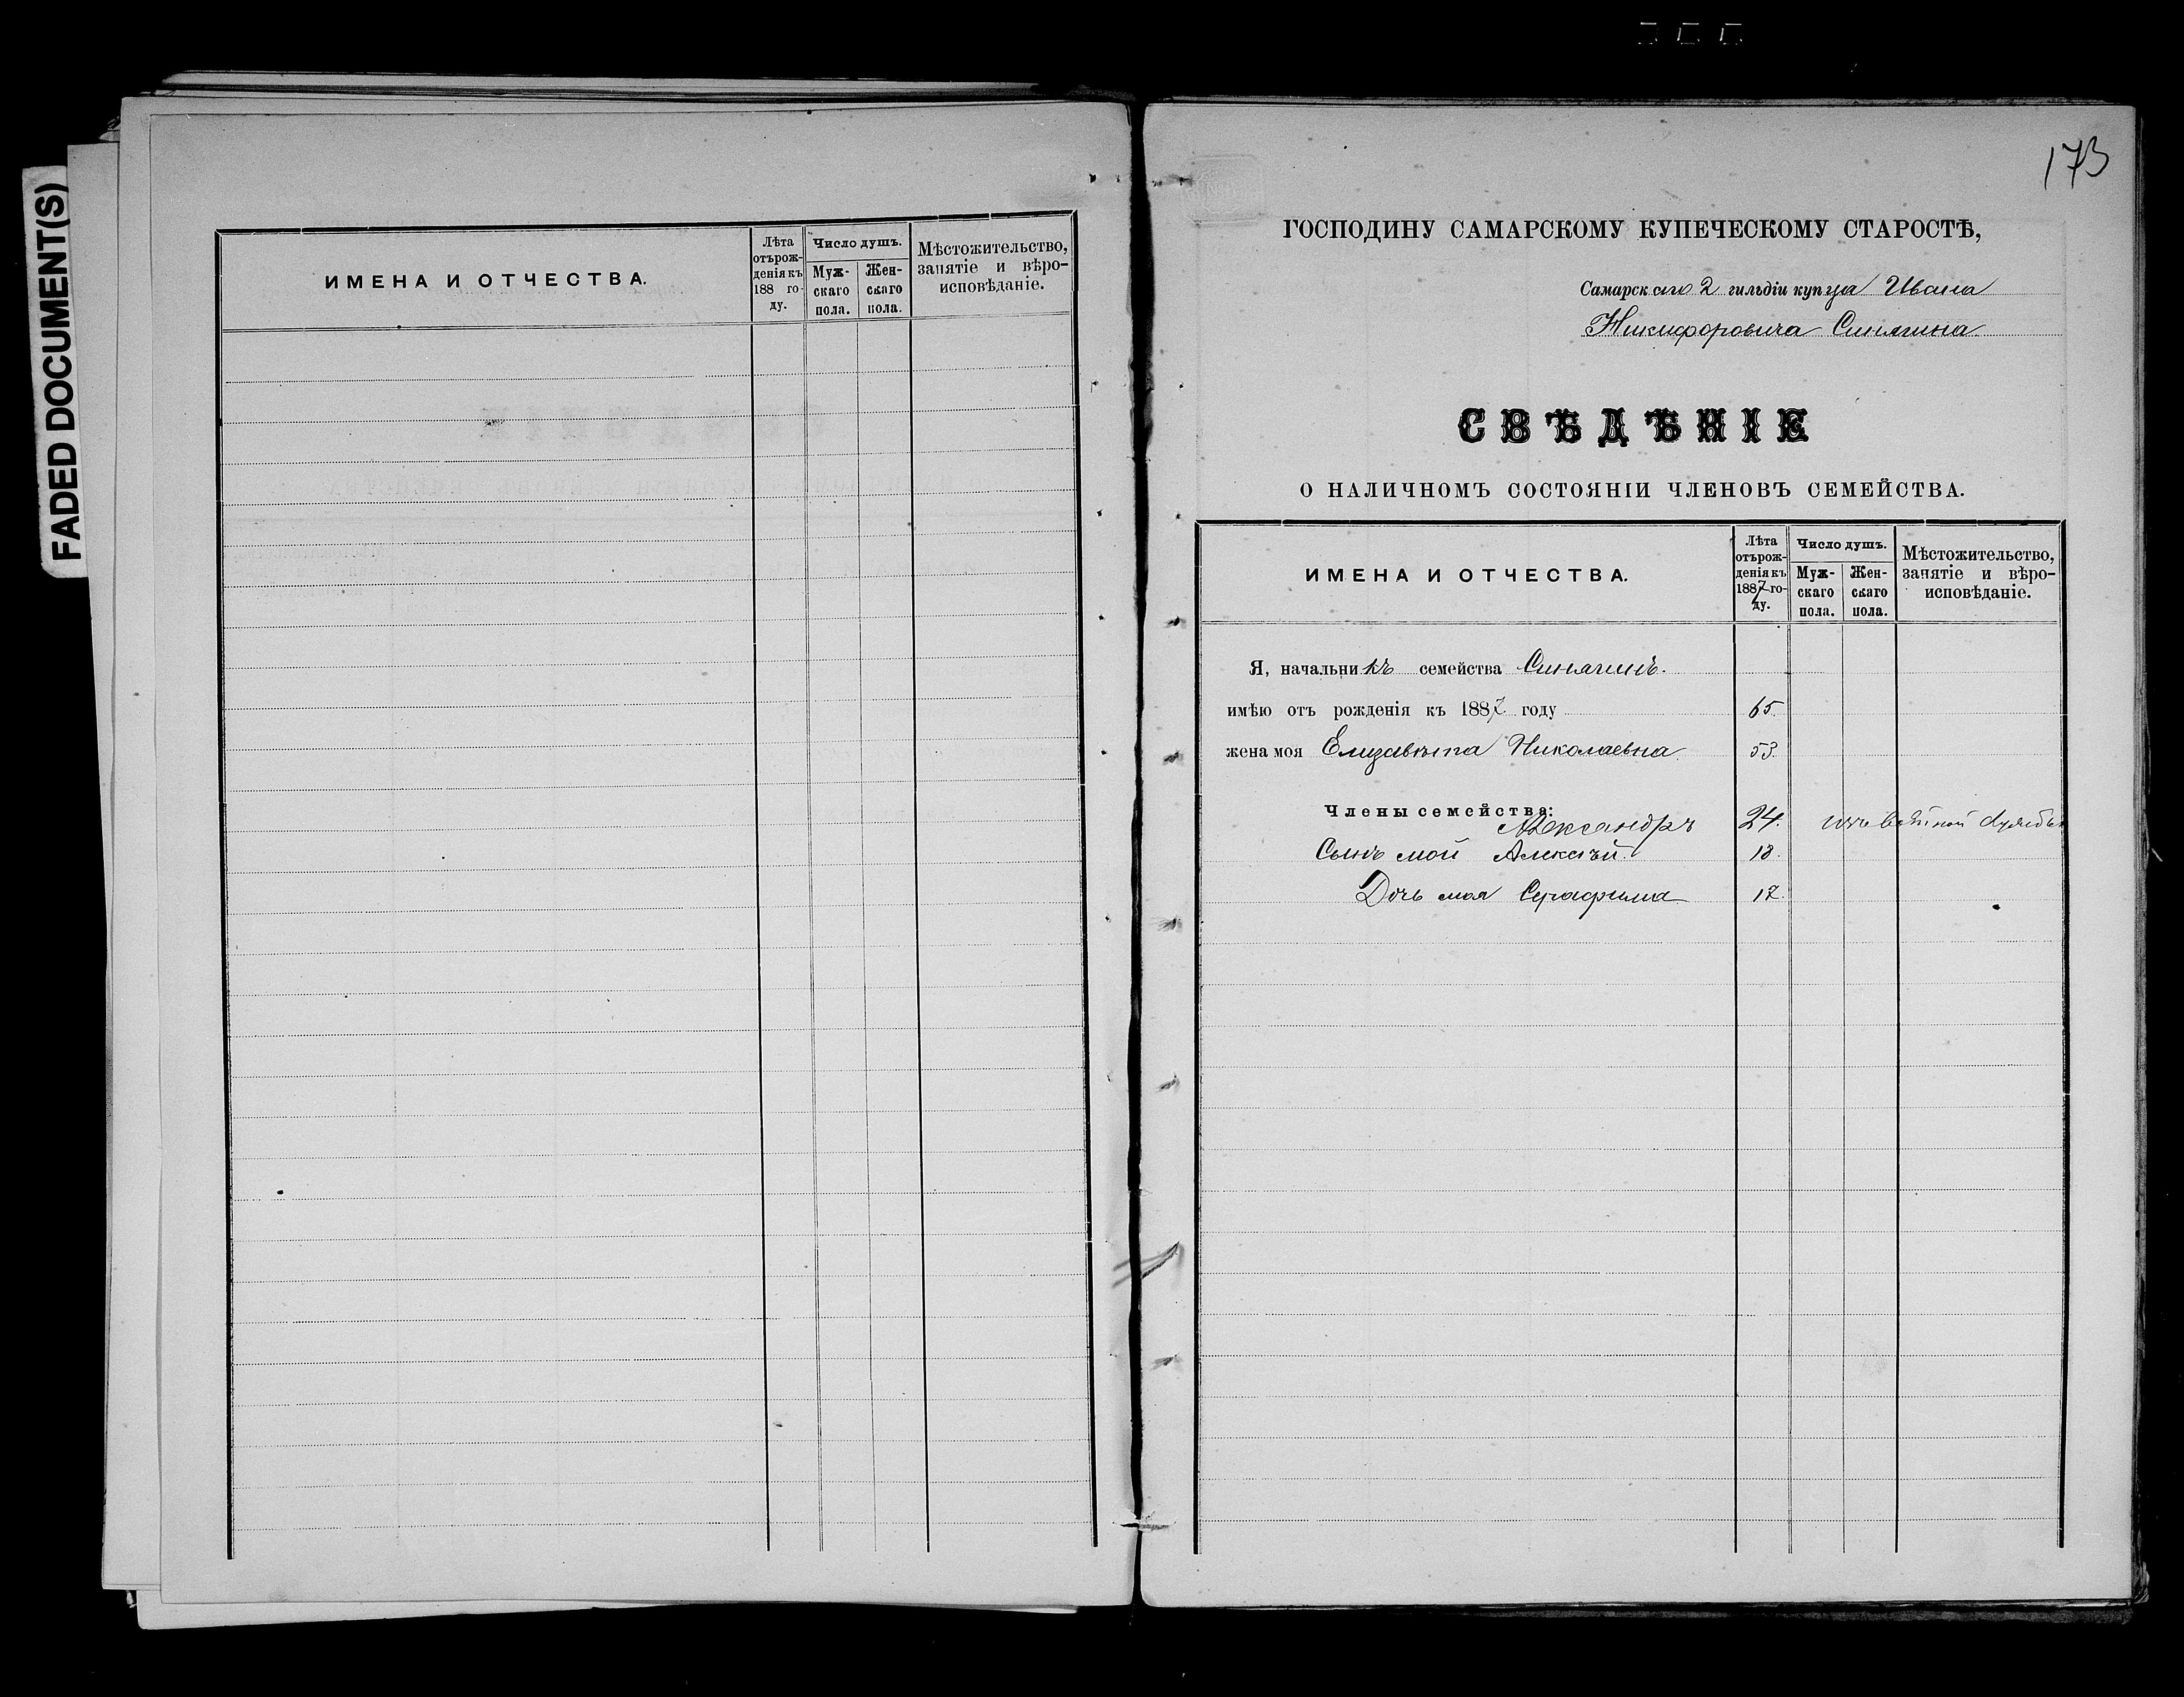 FADED DOCUMENT(S)
ИМЕНА И ОТЧЕСТВА.
Лѣта отърожденія къ 188 году.
Число душъ.
Мужскаго пола.
Женскаго пола.
Мѣстожительство, занятіе и вѣроисповѣданіе.
173
ГОСПОДИНУ САМАРСКОМУ КУПЕЧЕСКОМУ СТАРОСТѢ,
Самарскаго 2 гильдіи купца Ивана
Никифоровича Синягина
СВѢДѢНІЕ
О НАЛИЧНОМЪ СОСТОЯНІИ ЧЛЕНОВЪ СЕМЕЙСТВА.
ИМЕНА И ОТЧЕСТВА.
Лѣта отърожденія къ 1887 году.
Число душъ.
Мужскаго пола.
Женскаго пола.
Мѣстожительство, занятіе и вѣроисповѣданіе.
Я, начальникъ семейства Синягинъ.
имѣю отъ рожденія къ 1887 году 65.
жена моя Елизавѣта Николаевна 53.
Члены семейства:
Александръ 24.
Сынъ мой Алексѣй. 18.
Дочь моя Серафима 17.